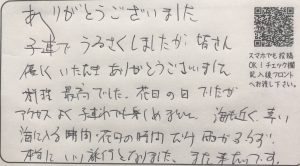 ありがとうございました
子連でうるさくしましたが皆さん
優しくいただきありがとうございました
料理最高でした。花日の日でしたが
アクセスよく子連でも楽しめました。海も近く、青い
海に入る時間・花火の時間だけ雨がふらず、
本当にいい旅行となりました。また来たいです。
スマホでも投稿
OK!チェック欄
記入後フロント
へお渡し下さい。